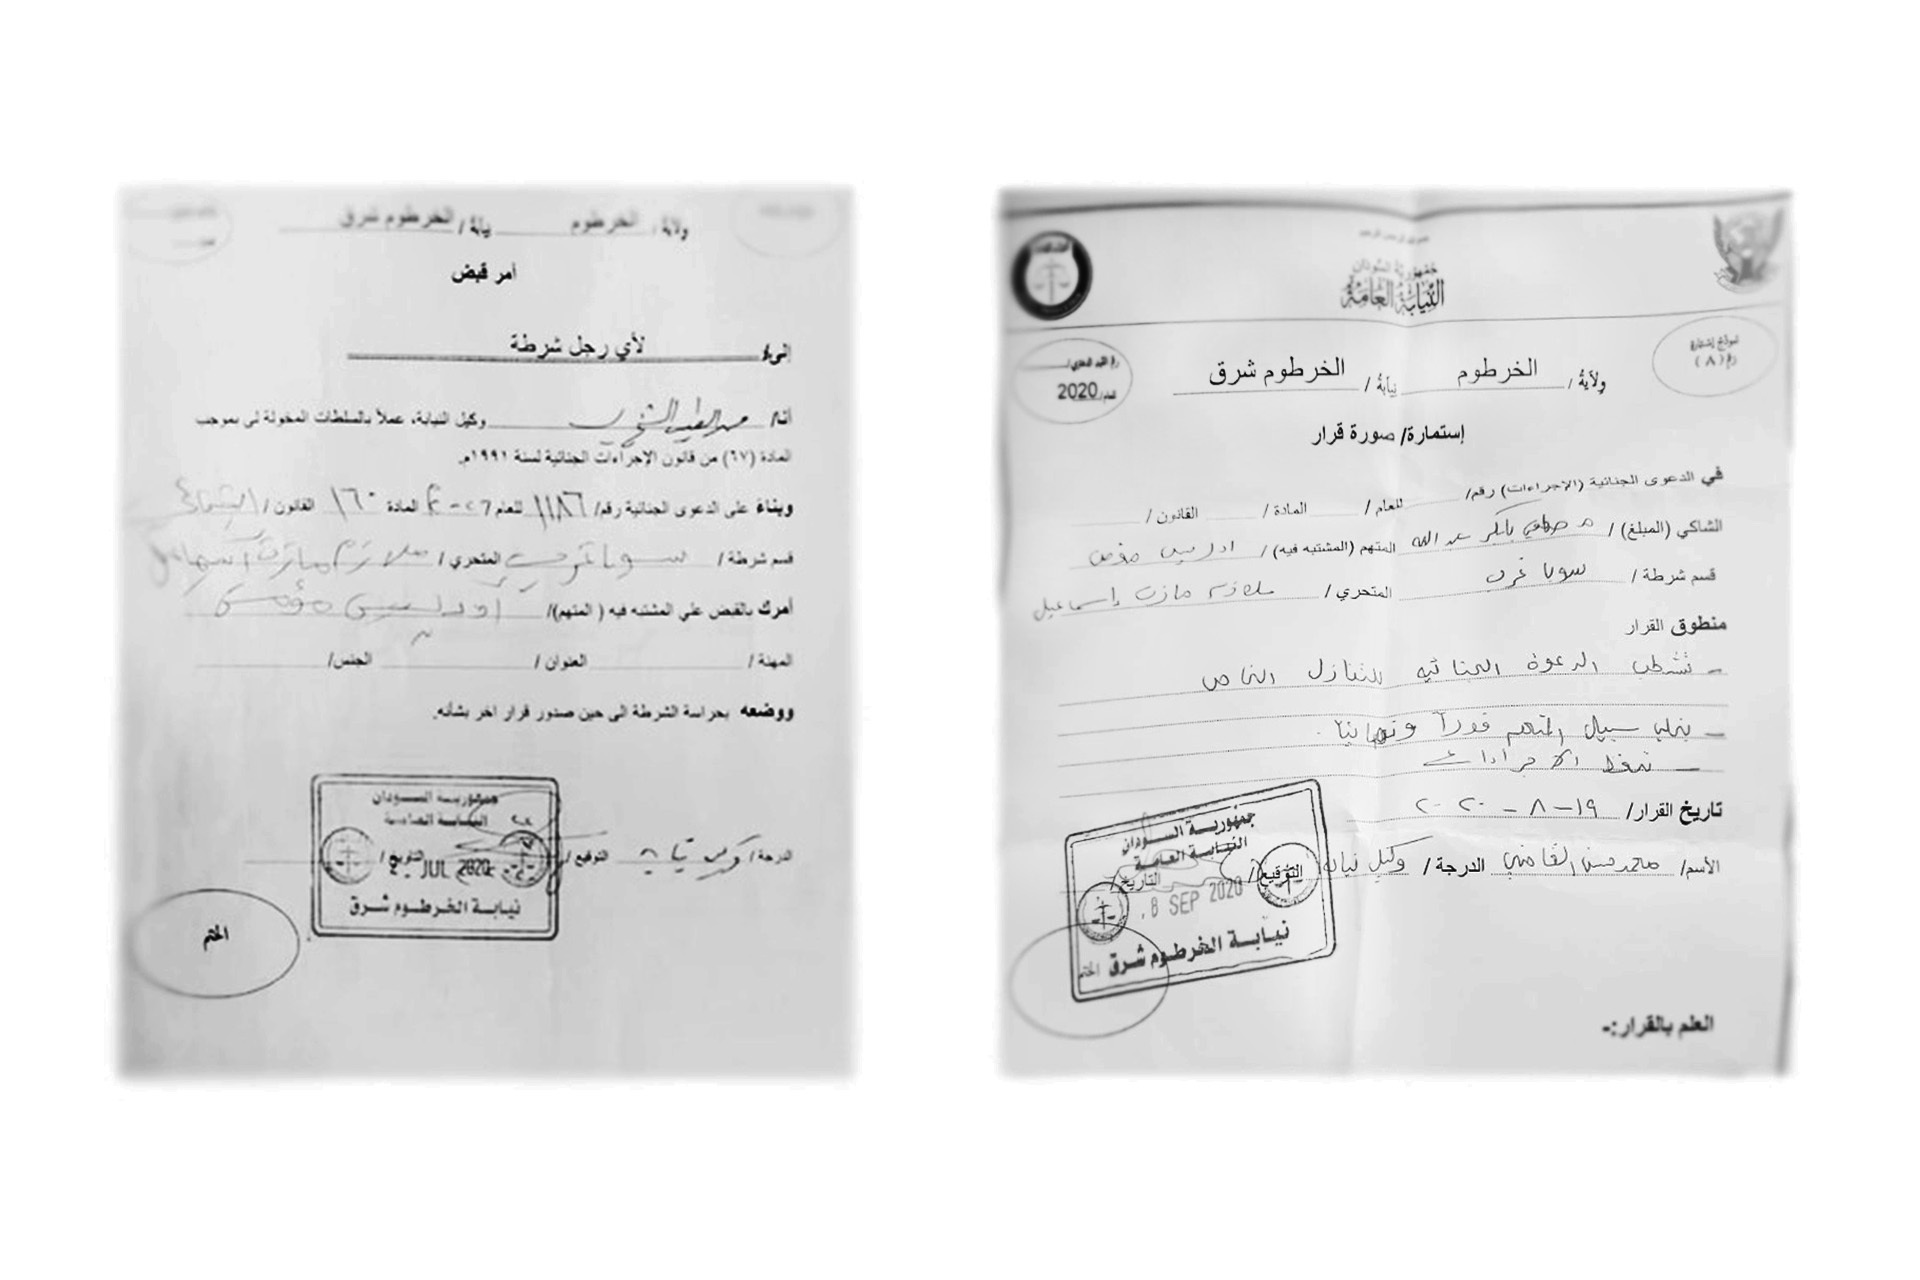 ولاية / الخرطوم نيابة / الخرطوم شرق
أمر قبض
إلى/ لأي رجل شرطة
أنا/ وكيل النيابة، عملاً بالسلطات المخولة لى بموجب
المادة (٦٧) من قانون الإجراءات الجنائية لسنة ١٩٩١م.
وبناءً على الدعوى الجنائية رقم/ ١١٨٦ للعام المادة ١٦٠ القانون /
قسم شرطة / سوبا غرب المتحري / ملازم مازن إسماعيل
أمرك بالقبض علي المشتبه فيه ( المتهم)/
المهنة / العنوان / الجنس/
ووضعه بحراسة الشرطة الى حين صدور قرار اخر بشأنه.
الدرجة / وكيل نيابة التوقيع / التاريخ /
جمهورية السودان
النيابة العامة
JUL 2020
نيابة الخرطوم شرق
الختم
جمهورية السودان
النيابة العامة
نموذج إستمارة
رقم (٨)
ولاية / الخرطوم نيابة / الخرطوم شرق
للعام/ 2020
إستمارة/ صورة قرار
في الدعوى الجنائية (الإجراءات) رقم/ للعام / المادة / القانون /
الشاكي (المبلغ) / مصطفي بابكر عبد الله المتهم (المشتبه فيه)/ ادريس
قسم شرطة / سوبا غرب المتحري / ملازم مازن إسماعيل
منطوق القرار
– تشطب الدعوة الجنائيه للتنازل الخاص
– يخلي سبيل المتهم فوراً ونهائياً.
– تحفظ الاجراءات
تاريخ القرار/ ١٩ – ٨ – ٢٠٢٠
الأسم/ محمد حسن القاضي الدرجة / وكيل نيابة التوقيع / التاريخ /
جمهورية السودان
النيابة العامة
8 SEP 2020
نيابة الخرطوم شرق
الختم
العلم بالقرار:-